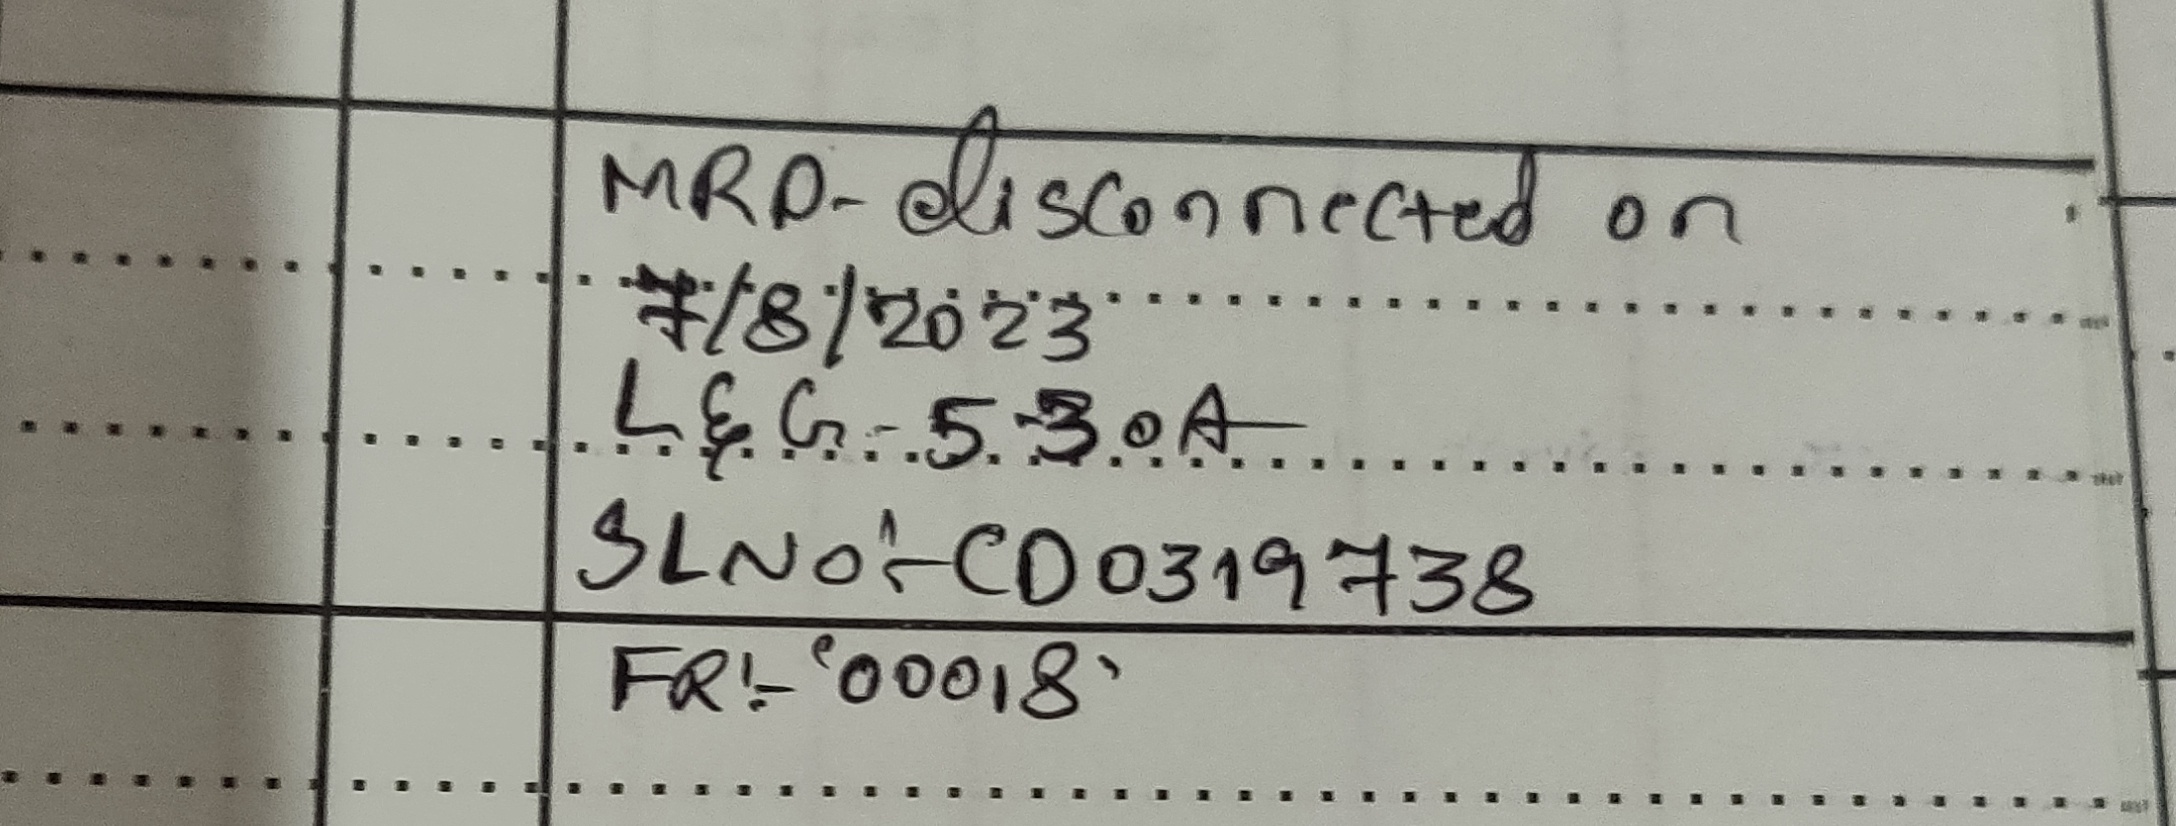 MRD- disconnected on
7/8/2023
L&G - 5-30A
SLNO:- CD0319738
FR:- '00018'